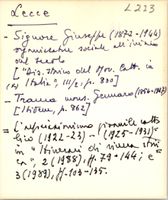 Lecce
L223
- Signore Giuseppe (1872-1944)
organizzatore sociale all'inizio
del secolo
["Diz. storico del Mov. Catt. in
Italia", III/2, p. 800]
- Trama mons. Gennaro (1856-1927)
[Ibidem, p. 862]
=
L'associazionismo giovanile catto
lico (1922-23) - (1925-1931)
in "Itinerari di ricerca stori
ca", 2 (1988), pp. 79-144; e
3 (1989), pp. 103-135.